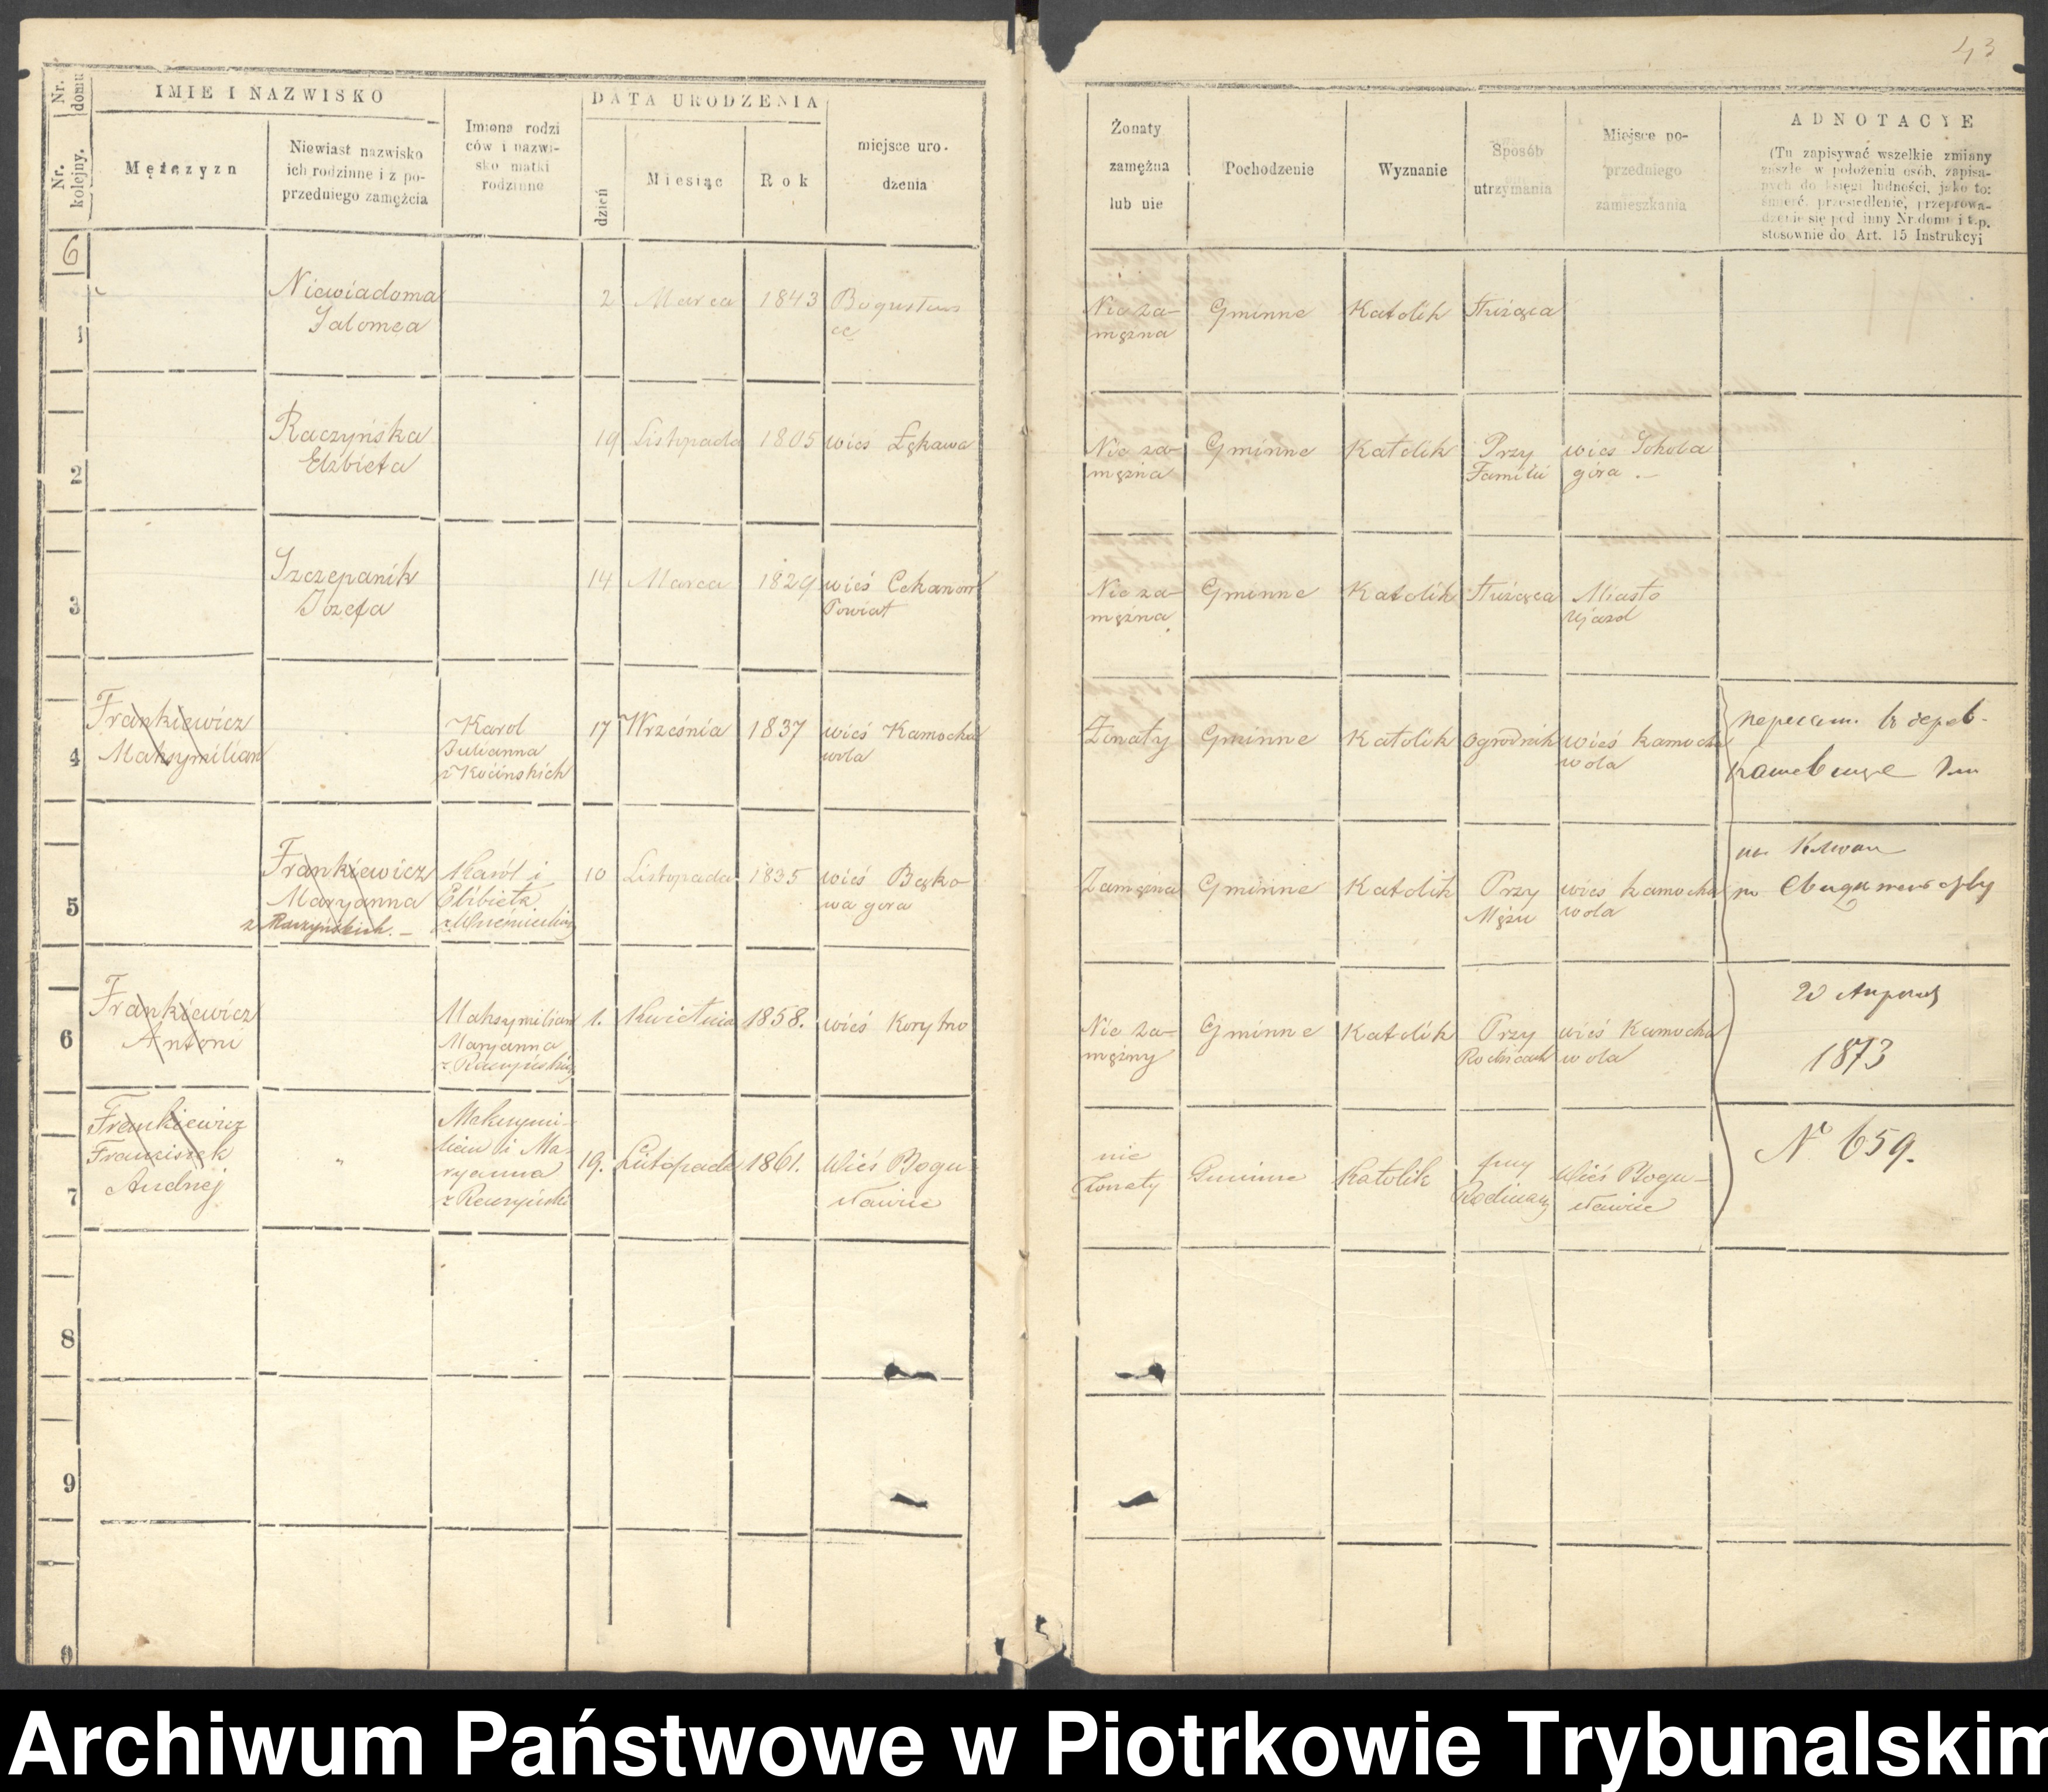 43
Nr. domu
Nr. kolejny.
IMIE I NAZWISKO
Mężczyzn
Niewiast nazwisko
ich rodzinne i z po-
przedniego zamężcia
Imiona rodzi
ców i nazwi-
sko matki
rodzinne
DATA URODZENIA
dzień
Miesiąc
Rok
miejsce uro-
dzenia
Żonaty
zamężna
lub nie
Pochodzenie
Wyznanie
Sposób
utrzymania
Miejsce po-
przedniego
zamieszkania
ADNOTACYE
(Tu zapisywać wszelkie zmiany
zaszłe w położeniu osób, zapisa-
nych do księgi ludności, jako to:
śmierć, przesiedlenie, przeprowa-
dzenie się pod inny Nr. domu i t.p.
stosownie do Art. 15 Instrukcyi
6
1
Niewiadoma
Salomea
2 Marca 1843
Nie za-
mężna
Gminne
Katolik
Służąca
2
Raczyńska
Elżbieta
19 Listopada 1805
wieś Łękawa
Nie za-
mężna
Gminne
Katolik
Przy
Familii
wieś Sokola
góra .-
3
Szczepanik
Józefa
14 Marca 1829
wieś Cekanow
Powiat
Nie za-
mężna
Gminne
Katolik
Służąca
Miasto
Ujazd
4
Frankiewicz
Maksymilian
Karol
Julianna
z Kocińskich
17 Września 1837
wieś Kamocka
wola
Żonaty
Gminne
Katolik
Ogrodnik
wieś Kamocka
wola
5
Frankiewicz
Maryanna
z Raczyńskich. -
Karól i
Elżbieta
10 Listopada 1835
wieś Bęko-
wa gora
Zamężna
Gminne
Katolik
Przy
Mężu
wieś kamocka
wola
6
Frankiewicz
Antoni
Maksymilian
Maryanna
z Raczyńskich
1. Kwietnia 1858.
wieś Korytno
Nie ża-
mężny
Gminne
Katolik
Przy
Rodzicach
wieś Kamocka
wola
20
1873
7
Frankiewicz
Franciszek
Andrzej
"
Maksymi-
lian i Ma-
ryanna
z Raczyński
19. Listopada 1861.
Wieś Bogu-
sławice
nie
Żonaty
Gminne
Katolik
przy
Rodzicach
Wieś Bogu-
sławice
№ 659.
8
9
0
Archiwum Państwowe w Piotrkowie Trybunalskim